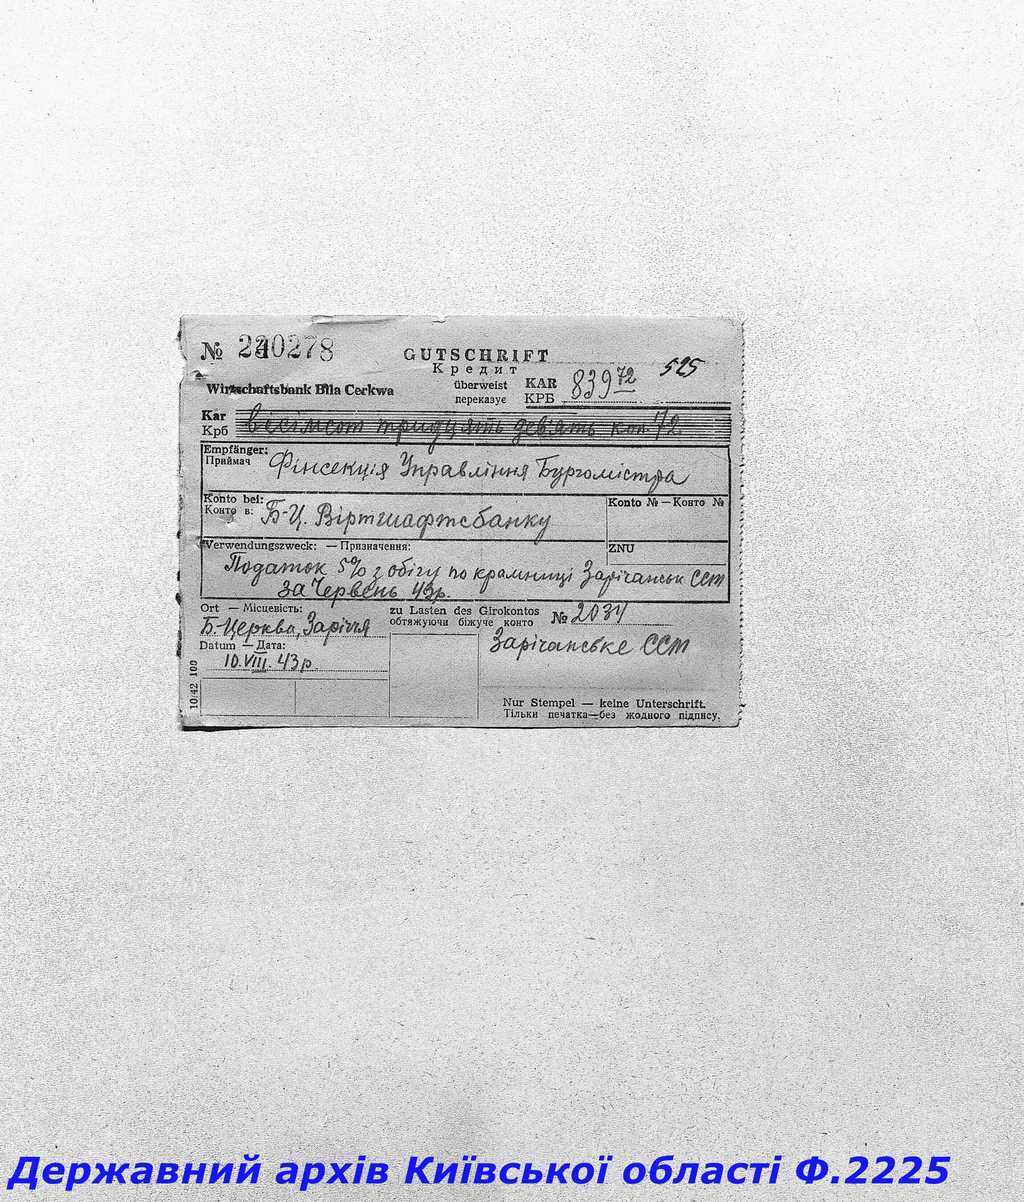 № 240278
GUTSCHRIFT
Кредит
525
Wirtschaftsbank Bila Cerkwa
überweist KAR 839 72
переказує КРБ
Kar
Крб вісімсот тридцять девять коп 72
Empfänger:
Приймач Фінсекція Управління Бургомістра
Konto bei: Konto № — Конто №
Конто в: Б-Ц. Віртшафтсбанку
Verwendungszweck: — Призначення: ZNU
Податок 5% з обігу по крамниці Зарічанськ ССТ
за Червень 43р.
Ort — Місцевість: zu Lasten des Girokontos № 2034
Б.-Церква, Заріччя обтяжуючи біжуче конто
Зарічанське ССТ
Datum — Дата:
10.VIII.43р.
10/42 100
Nur Stempel — keine Unterschrift.
Тільки печатка—без жодного підпису.
Державний архів Київської області Ф.2225